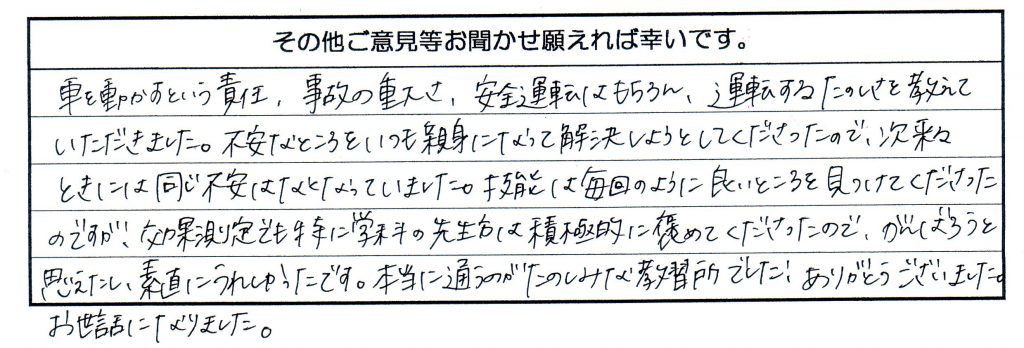 その他ご意見等お聞かせ願えれば幸いです。
車を動かすという責任、事故の重大さ、安全運転はもちろん、運転するたのしさを教えて
いただきました。不安なところをいつも親身になって解決しようとしてくださったので、次来る
ときには同じ不安はなくなっていました。技能は毎回のように良いところを見つけてくださった
のですが、効果測定でも特に学科の先生方は積極的に褒めてくださったので、がんばろうと
思えたし、素直にうれしかったです。本当に通うのがたのしみな教習所でした!ありがとうございました。
お世話になりました。